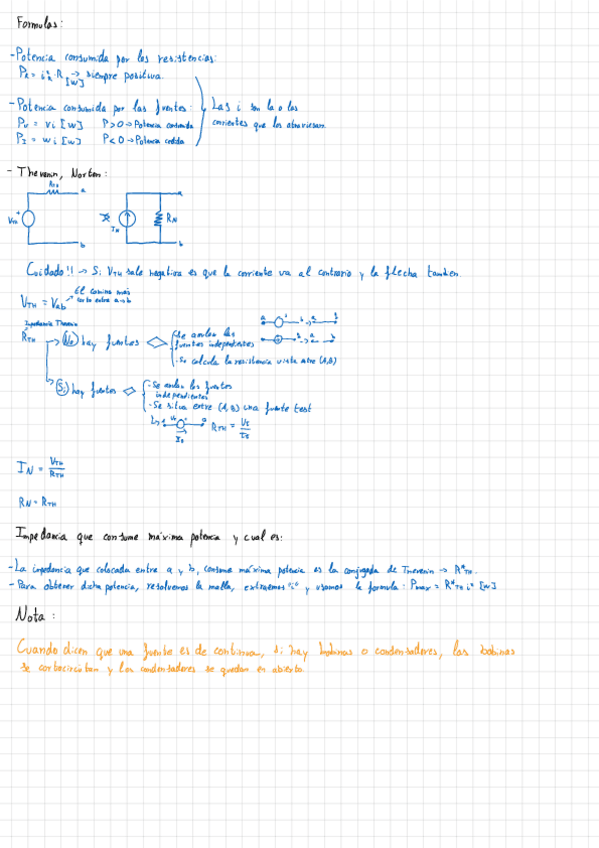 Formulas:
-Potencia consumida por las resistencias:
PR = i²R · R [W] → siempre positiva.
-Potencia consumida por las fuentes:
Pv = v i [W] P>0 → Potencia consumida
PI = w i [W] P<0 → Potencia cedida
Las i son la o las
corrientes que los atraviesan.
- Thevenin, Norton:
RTH a
VTH + b
IN RN a b
Cuidado!! → Si VTH sale negativa es que la corriente va al contrario y la flecha tambien.
VTH = Vab → El camino más
corto entre a → b
Impedancia Thevenin
RTH
No hay fuentes
-Se anulan las
fuentes independientes
-Se calcula la resistencia vista entre (A,B)
a b → a b
a b → a b
Si hay fuentes
-Se anulan las fuentes
independientes
-Se situa entre (A,B) una fuente test
RTH = VT/IT
IN = VTH/RTH
RN = RTH
Impedancia que consume máxima potencia y cual es:
-La impedancia que colocada entre a y b, consume máxima potencia es la conjugada de Thevenin → R*TH.
-Para obtener dicha potencia, resolvemos la malla, extraemos "i" y usamos la formula: Pmax = R*TH i² [W]
Nota:
Cuando dicen que una fuente es de continua, si hay bobinas o condensadores, las bobinas
se cortocircuitan y los condensadores se quedan en abierto.